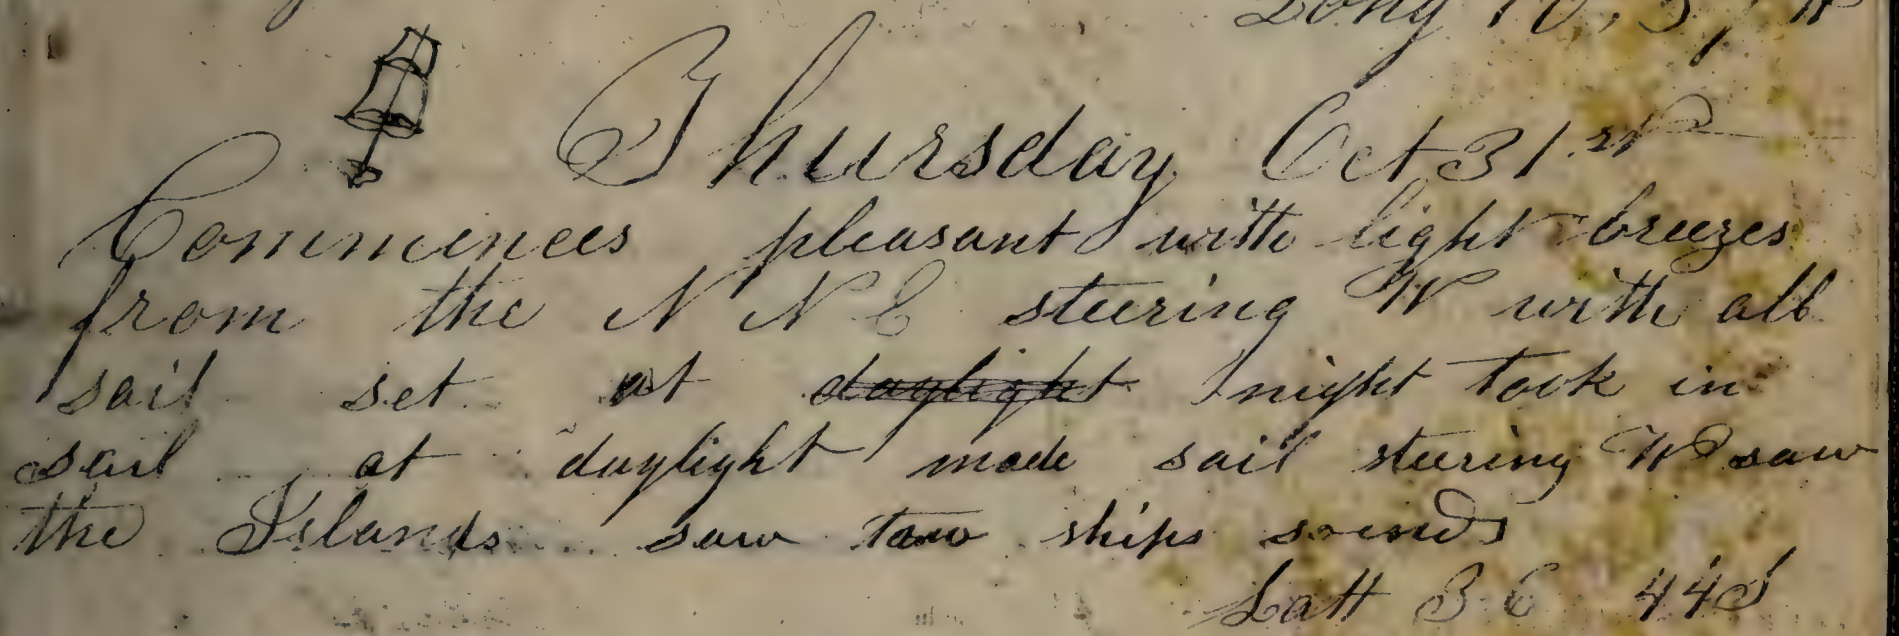 Long 10, 37 W
Thursday Oct 31 st
Commences pleasant with light breezes
from the N N E steering W with all
sail set at daylight night took in
sail at daylight made sail steering W saw
the Islands saw tow ships so ends
Latt 36 44 S